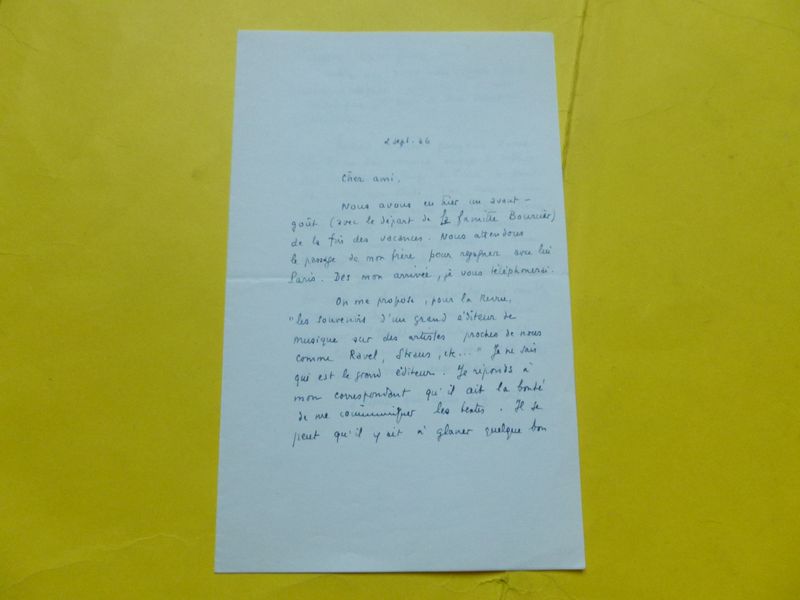 2 sept. 66
Cher ami,
Nous avons eu hier un avant-
goût (avec le départ de la famille Bourrier)
de la fin des vacances. Nous attendons
le passage de mon frère pour regagner avec lui
Paris. Dès mon arrivée, je vous téléphonerai.
On me propose, pour la Revue,
"les souvenirs d'un grand éditeur de
musique sur des artistes proches de nous
comme Ravel, Straus, etc..." Je ne sais
qui est le grand éditeur. Je réponds à
mon correspondant qu'il ait la bonté
de me communiquer les textes. Il se
peut qu'il y ait à glaner quelque bon